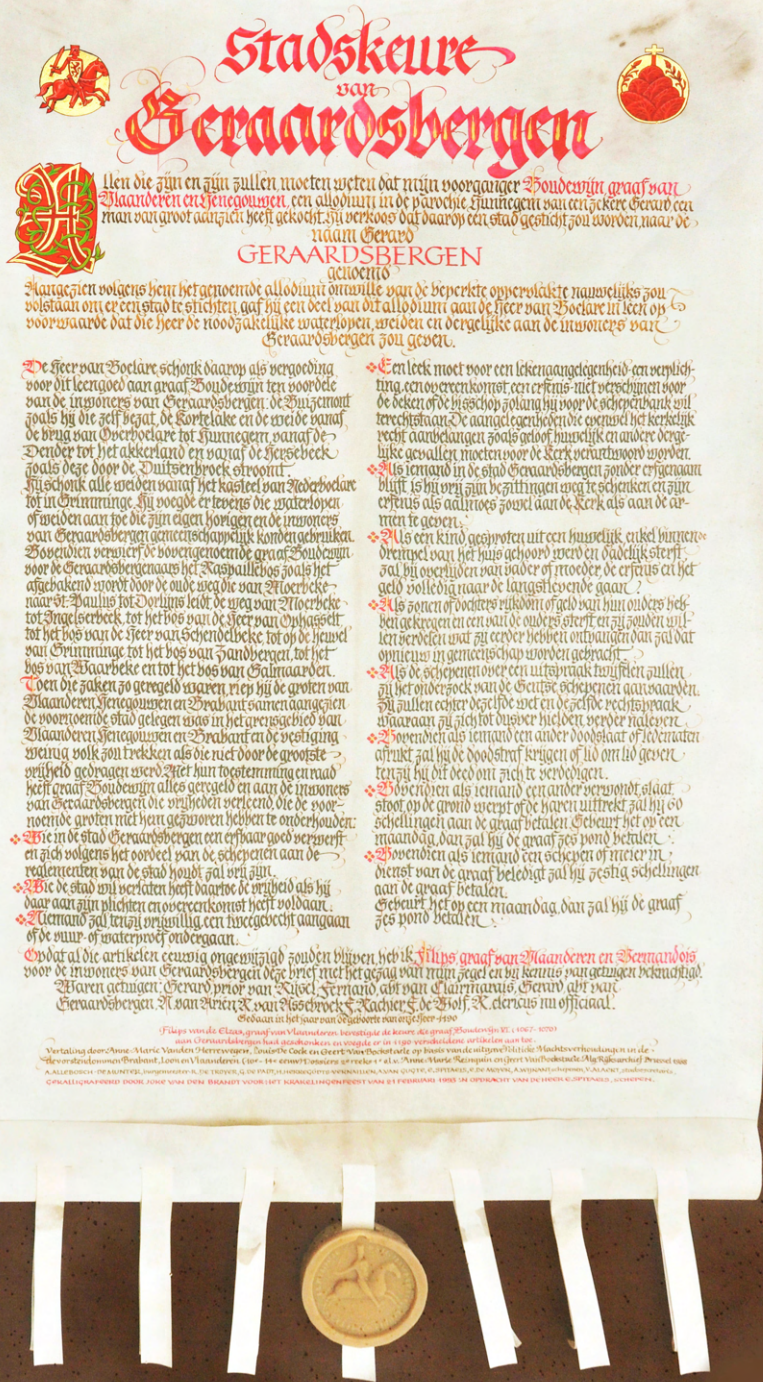 Stadskeure
van
Geraardsbergen
Allen die zijn en zijn zullen, moeten weten dat mijn voorganger Boudewijn, graaf van
Vlaanderen en Henegouwen, een allodium in de parochie Hunnegem van een zekere Gerard een
man van groot aanzien heeft gekocht. Hij verkoos dat daarop een stad gesticht zou worden, naar de
naam Gerard
GERAARDSBERGEN
genoemd
Aangezien volgens hem het genoemde allodium omwille van de beperkte oppervlakte nauwelijks zou
volstaan om er een stad te stichten, gaf hij een deel van dit allodium aan de Heer van Boelare in leen op
voorwaarde dat die Heer de noodzakelijke waterlopen, weiden en dergelijke aan de inwoners van
Geraardsbergen zou geven.
De Heer van Boelare, schonk daarop als vergoeding
voor dit leengoed aan graaf Boudewijn ten voordele
van de inwoners van Geraardsbergen: de Buizemont
zoals hij die zelf bezat, de Kortelake en de weide vanaf
de brug van Overboelare tot Hunnegem, vanaf de
Dender tot het akkerland en vanaf de Hersebeek
zoals deze door de Duitsenbroek stroomt.
Hij schonk alle weiden vanaf het kasteel van Nederboelare
tot in Grimminge. Hij voegde er tevens die waterlopen
of weiden aan toe die zijn eigen horigen en de inwoners
van Geraardsbergen gemeenschappelijk konden gebruiken.
Bovendien verwierf de bovengenoemde graaf Boudewijn
voor de Geraardsbergenaars het Raspaillebos zoals het
afgebakend wordt door de oude weg die van Moerbeke
naar St. Paulus tot Dorlijns leidt, de weg van Moerbeke
tot Ingelserbeek, tot het bos van de Heer van Ophasselt
tot het bos van de Heer van Schendelbeke, tot op de heuvel
van Grimminge tot het bos van Zandbergen, tot het
bos van Waarbeke en tot het bos van Galmaarden.
Toen die zaken zo geregeld waren, riep hij de groten van
Vlaanderen Henegouwen en Brabant samen aangezien
de voornoemde stad gelegen was in het grensgebied van
Vlaanderen Henegouwen en Brabant en de vestiging
weinig volk zou trekken als die niet door de grootste
vrijheid gedragen werd. Met hun toestemming en raad
heeft graaf Boudewijn alles geregeld en aan de inwoners
van Geraardsbergen die vrijheden verleend, die de voor-
noemde groten met hem gezworen hebben te onderhouden:
Wie in de stad Geraardsbergen een erfbaar goed verwerft
en zich volgens het oordeel van de schepenen aan de
reglementen van de stad houdt zal vrij zijn.
Wie de stad wil verlaten heeft daartoe de vrijheid als hij
daar aan zijn plichten en overeenkomst heeft voldaan.
Niemand zal tenzij vrijwillig, een tweegevecht aangaan
of de vuur- of waterproef ondergaan.
Een leek moet voor een lekenaangelegenheid-een verplich-
ting, een overeenkomst, een erfenis-niet verschijnen voor
de deken of de bisschop zolang hij voor de schepenbank wil
terechtstaan. De aangelegenheden die evenwel het kerkelijk
recht aanbelangen zoals geloof huwelijk en andere derge-
lijke gevallen moeten voor de Kerk verantwoord worden.
Als iemand in de stad Geraardsbergen zonder erfgenaam
blijft is hij vrij zijn bezittingen weg te schenken en zijn
erfenis als aalmoes zowel aan de Kerk als aan de ar-
men te geven.
Als een kind gesproten uit een huwelijk, enkel binnen
drempel van het huis gehoord werd en dadelijk sterft
zal bij overlijden van vader of moeder, de erfenis en het
geld volledig naar de langstlevende gaan.
Als zonen of dochters rijkdom of geld van hun ouders heb-
ben gekregen en een van de ouders sterft en zij zouden wil-
len verdelen wat zij eerder hebben ontvangen dan zal dat
opnieuw in gemeenschap worden gebracht.
Als de schepenen over een uitspraak twijfelen zullen
zij het onderzoek van de Gentse schepenen aanvaarden.
Zij zullen echter dezelfde wet en dezelfde rechtspraak
waaraan zij zich tot dusver hielden verder naleven.
Bovendien als iemand een ander doodslaat of ledematen
afrukt zal hij de doodstraf krijgen of lid om lid geven
tenzij hij dit deed om zich te verdedigen.
Bovendien als iemand een ander verwondt, slaat,
stoot, op de grond werpt of de haren uittrekt zal hij 60
schellingen aan de graaf betalen. Gebeurt het op een
maandag, dan zal hij de graaf zes pond betalen.
Bovendien als iemand een schepen of meier in
dienst van de graaf beledigt zal hij zestig schellingen
aan de graaf betalen.
Gebeurt het op een maandag, dan zal hij de graaf
zes pond betalen
Opdat al die artikelen eeuwig ongewijzigd zouden blijven, heb ik, Filips, graaf van Vlaanderen en Vermandois
voor de inwoners van Geraardsbergen deze brief met het gezag van mijn zegel en bij kennis van getuigen bekrachtigd.
Waren getuigen: Gerard, prior van Rijsel, Fernand, abt van Clairmarais, Gerard abt van
Geraardsbergen, A. van Ariën, R. van Asschrock, E. Rachier, E. de Wolf, R. clericus nu officiaal.
Gedaan in het jaar van de geboorte van onze Heer 1190
Filips van de Elzas, graaf van Vlaanderen, bevestigde de keure die graaf Boudewijn VI (1067-1070)
aan Geraardsbergen had geschonken en voegde er in 1190 verscheidene artikelen aan toe.
Vertaling door Anne-Marie Vanden Herrewegen, Louis De Cock en Geert Van Bockstaele op basis van de uitgave Politieke Machtsverhoudingen in de
GEKALLIGRAFEERD DOOR JOKE VAN DEN BRANDT VOOR HET KRAKELINGENFEEST VAN 27 FEBRUARI 1983 IN OPDRACHT VAN DE HEER E. SPITAELS, SCHEPEN.